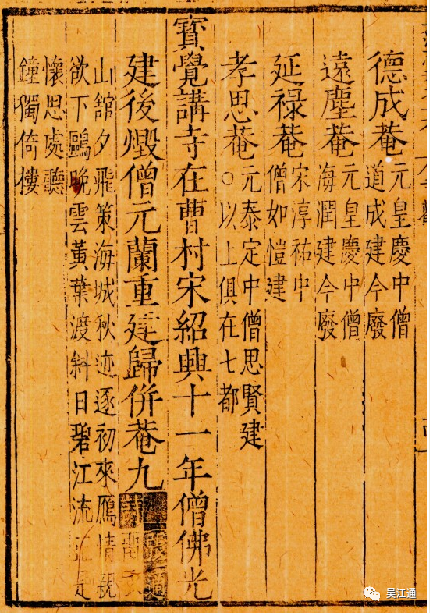 德成庵 元皇慶中僧
道成建今廢
遠塵庵 元皇慶中僧
海潤建今廢
延禄庵 宋淳祐中
僧如愷建
孝思庵 元泰定中僧思賢建
○以上俱在七都
寳覺講寺在曹村宋紹興十一年僧佛光
建後燬僧元蘭重建歸併庵九
山舘夕飛策海城秋迹逐初來鴈情親
欲下鷗晚雲黃葉渡斜日碧江流是
懷思處聽
鐘獨倚樓
吴江通